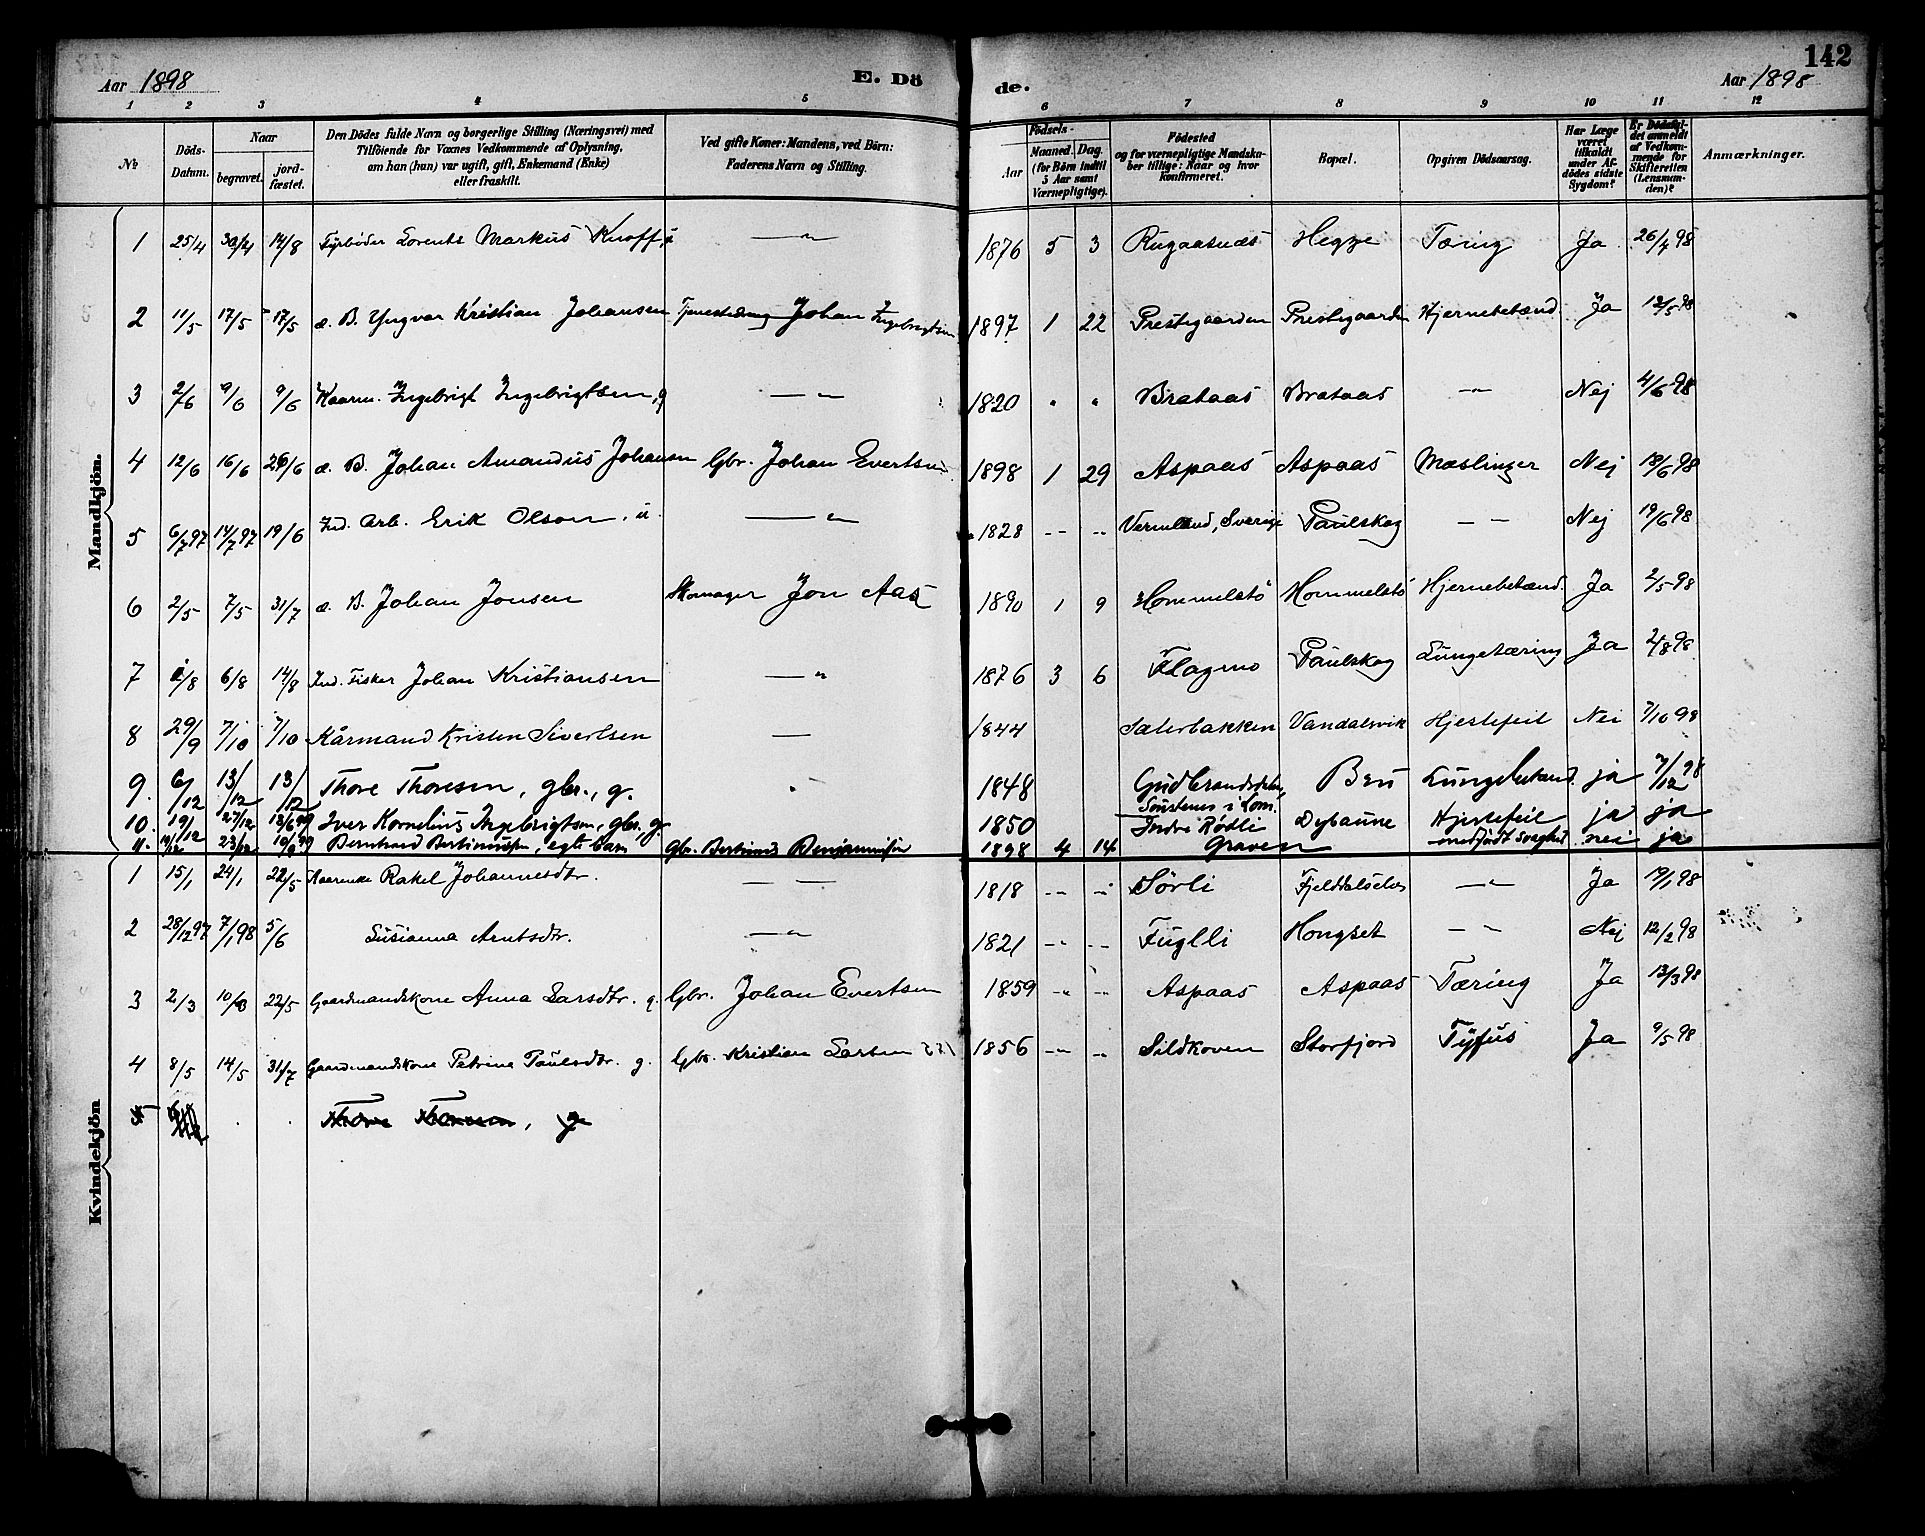 142
Aar 1898 E. Dö de. Aar 1898
1 2 3 4 5 6 7 8 9 10 11 12
No
Döds-Datum.
Naar
begravet.
jord-fæstet.
Den Dödes fulde Navn og borgerlige Stilling (Næringsvei) med
Tilföiende for Voxnes Vedkommende af Oplysning,
om han (hun) var ugift, gift, Enkemand (Enke)
eller fraskilt.
Ved gifte Koner: Mandens, ved Börn:
Faderens Navn og Stilling.
Födsels-
Aar
Maaned. Dag.
(for Börn indtil
5 Aar samt
Værnepligtige).
Födested
og for værnepligtige Mandska-
ber tillige: Naar og hvor
konfirmeret.
Bopæl.
Opgiven Dödsaarsag.
Har Læge
været
tilkaldt
under Af-
dödes sidste
Sygdom?
Er Dödsfal-
det anmeldt
af Vedkom-
mende for
Skifteretten
(Lensman-
den)?
Anmærkninger.
Mandkjön.
1 25/4 30/4 14/8 Fyrböder Lorents Markus Knoff, u — " 1876 5 3 Rugaasnæs Hegge Tæring Ja 26/4 98
2 11/5 17/5 17/5 æ. B. Yngvar Kristian Johansen Johan Ingebrigtsen 1897 1 22 Prestegaarden Prestegaarden Hjernebetænd. Ja 12/5 98
3 2/6 9/6 9/6 Kaarm. Ingebrigt Ingebrigtsen, g — " 1820 " " Brataas Brataas — " Nej 4/6 98
4 12/6 16/6 26/6 æ. B. Johan Amandus Johansen Gbr. Johan Evertsen 1898 1 29 Aspaas Aspaas Mæslinger Nej 18/6 98
5 6/7 97 14/7 97 19/6 Ind. Arb. Erik Olson, u. — " 1828 -- -- Vermland, Sverige Paulskog — — Nej 19/6 98
6 2/5 7/5 31/7 æ. B. Johan Jonsen Skomager Jon Aas 1890 1 9 Hommelstö Hommelstö Hjernebetænd. Ja 2/5 98
7 1/8 6/8 14/8 Ind. Fisker Johan Kristiansen — " 1876 3 6 Flagmo Paulskog Lungetæring Ja 2/8 98
8 29/9 7/10 7/10 Kårmand Kristen Sivertsen — 1844 Sæterbakken Vandalsvik Hjertefeil Nei 7/10 98
9. 6/12 13/12 13/12 Thore Thoresen, gbr., g. " 1848 Gudbrandsdalen, i Lom. Lungebetænd. ja 7/12 98
10. 19/12 27/12 Iver Kornelius Ingebrigtsen, gbr. g. 1850 Indre Rödli Hjertefeil ja ja
11. 23/12 Bernhard , egte barn Gbr. Bertinus Benjaminsen 1898 4 14 Graven medfödt Svaghed nei ja
Kvindekjön
1 15/1 24/1 22/5 Rakel Johannesdtr. — — 1818 -- -- Sörli — " Ja 19/1 98
2 28/12 97 7/1 98 5/6 Susianna Arntsdtr. — " 1821 -- -- Fuglli Hongset — " Nej 12/2 98
3 2/3 10/3 22/5 Gaardmandskone Anna Larsdtr. g. Gbr. Johan Evertsen 1859 -- -- Aspaas Aspaas Tæring Ja 13/3 98
4 8/5 14/5 31/7 Gaardmandskone Petrine Paulsdtr. g. Gbr. Kristian Larsen 1856 -- -- Sildkoven Storfjord Tyfus Ja 9/5 98
5 Thore Thoresen, g